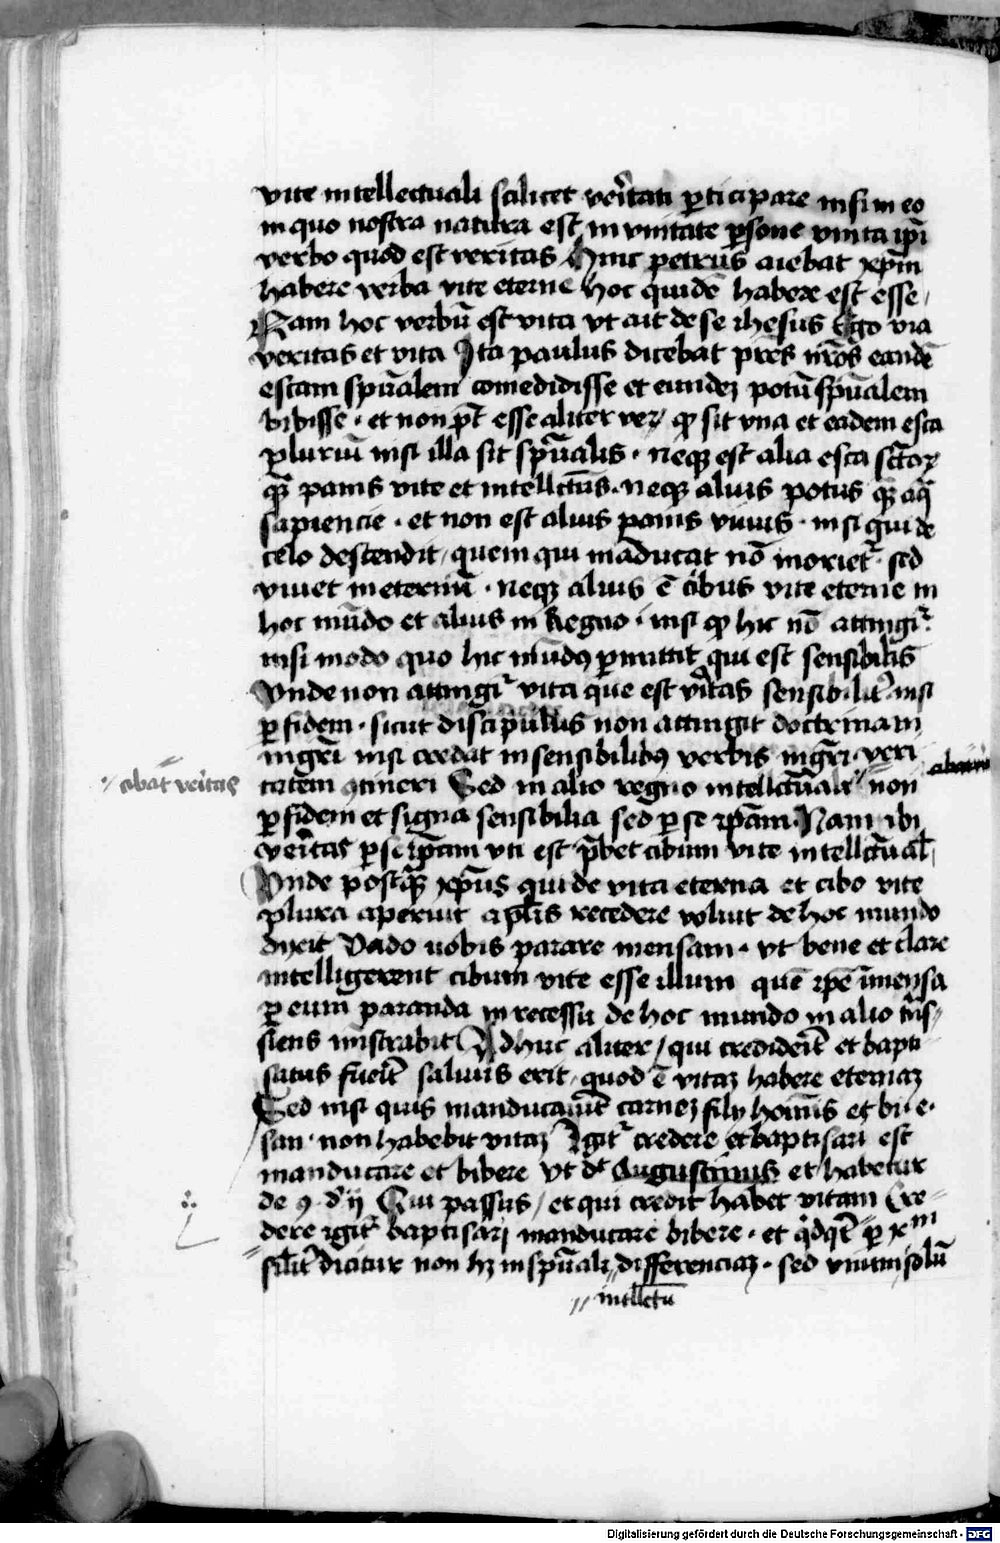 vite intellectuali scilicet veritati perticipare nisi in eo
in quo nostra natura est in vnitate persone vnita ipsi
verbo quod est veritas Hinc petrus aiebat xpm
habere verba vite eterne hoc quidē habere est esse
Nam hoc verbū est vita vt ait de se ihesus Ego via
veritas et vita Ita paulus dicebat pres nros eandē
escam spualem comedidisse et eundez potū spualem
bibisse · et non pt esse aliter ver ꝙ sit vna et eadem esca
pluriū nisi illa sit spualis · neqz est alia esca sctor
qz panis vite et intellctus · neqz alius potus qz aq
sapiencie · et non est alius panis viuus · nisi qui de
celo descendit quem qui māducat nō moriet sed
viuet in eternū · neqz alius ē cibus vite eterne in
hoc mūdo et alius in Regno · nisi ꝙ hic nō attingit
nisi modo quo hic mūdus pmittit qui est sensibilis
Vnde non attingit vita que est vitas sensibilit nisi
p fidem · sicut discipulus non attingit doctrinam
mgri nisi credat in sensibilibus verbis mgri veri
tatem ꝯtineri Sed in alio regno intellctuali non
p fidem et signa sensibilia sed p se ipam Nam ibi
veritas p se ipam vti est pbet cibum vite intellctual
Vnde postqz xpus qui de vita eterna et cibo vite
plura aperuit aplis recedere voluit de hoc mundo
dixit Vado uobis parare mensam · vt bene et clare
intelligerent cibum vite esse illum quē ipe ī mensa
p eum paranda in recessu de hoc mundo in alio tns
siens mistrabit Adhuc aliter qui crediderit et bapti
satus fuerit saluus erit quod ē vitaz habere eternaz
Sed nisi quis manducauit carnez filij hoīs et bi · e ·
san · non habebit vitaz Igit credere et baptisari est
manducare et bibere vt dt Augustinus et habetur
de ꝯ · d ij Qui passus et qui credit habet vitam Cre
dere igit baptisari manducare bibere · et qdqt p xm
silit dicitur non hz in spuali differenciaz · sed vnum solū
intllctū
cibat veritas